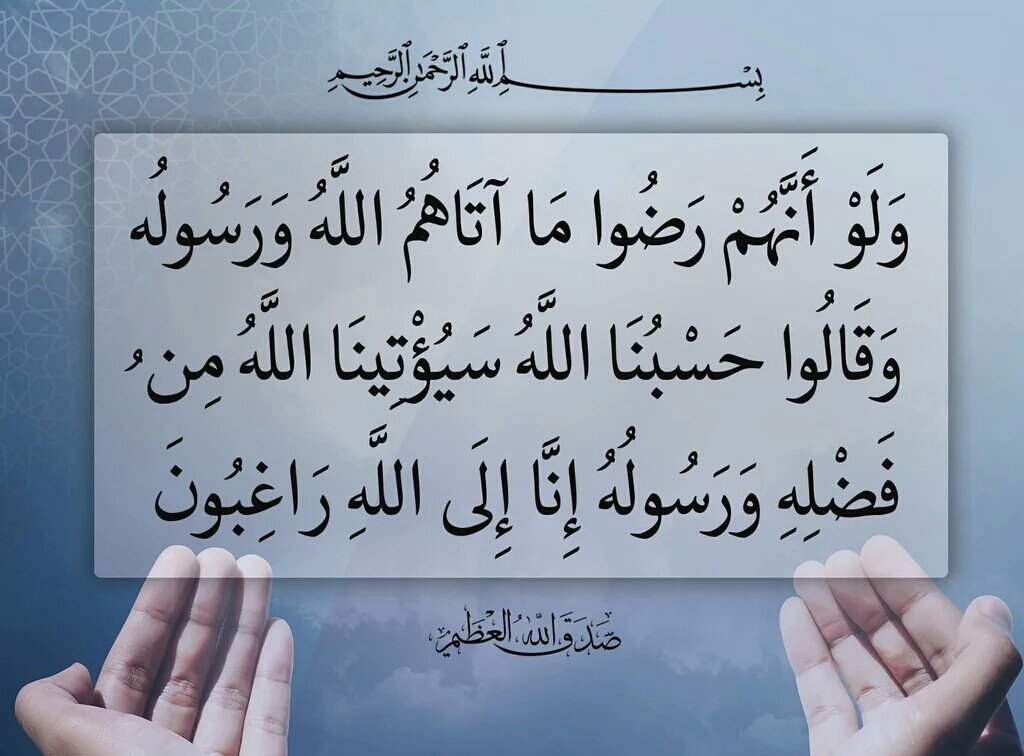 بِسْمِ ٱللَّهِ ٱلرَّحْمَٰنِ ٱلرَّحِيمِ
وَلَوْ أَنَّهُمْ رَضُوا مَا آتَاهُمُ اللَّهُ وَرَسُولُه
وَقَالُوا حَسْبُنَا اللَّهُ سَيُؤْتِينَا اللَّهُ مِن ُ
فَضْلِهِ وَرَسُولُهُ إِنَّا إِلَى اللَّهِ رَاغِبُونَ
صَدَقَ اللهُ العَظِيمُ